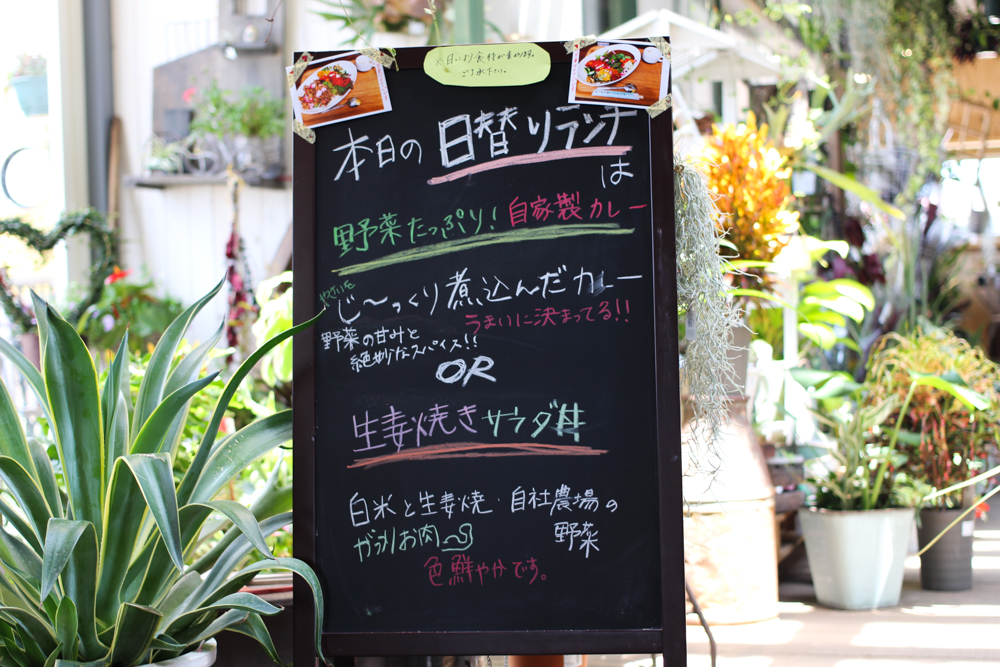 ※日により食材が変わります。
ご了承下さい。
本日の日替りランチ
は
野菜たっぷり!自家製カレー
じ〜っくり煮込んだカレー
うまいに決まってる!!
野菜の甘みと
絶妙なスパイス!!
OR
生姜焼きサラダ丼
白米と生姜焼・自社農場の
ガッツリお肉 野菜
色鮮やかです。